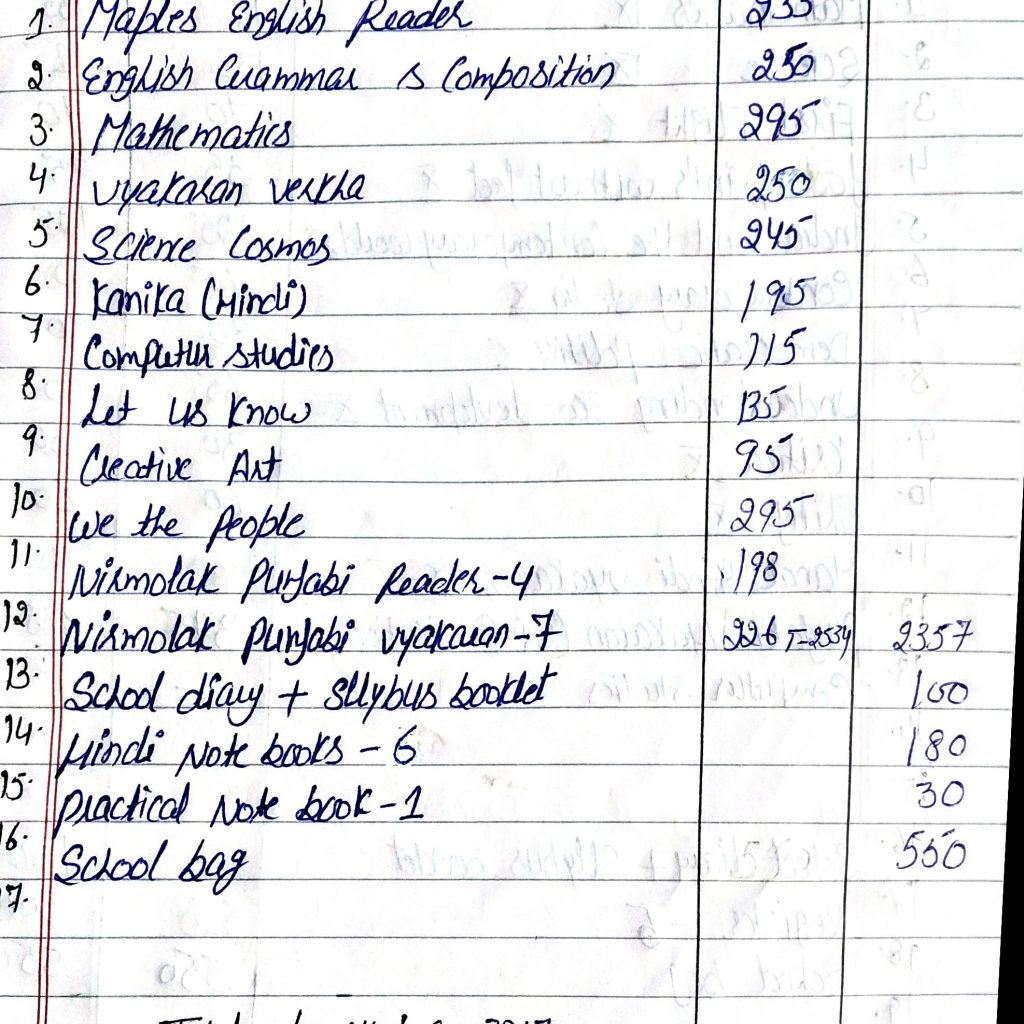 1. Maples English Reader 235
2. English Grammar & Composition 250
3. Mathematics 295
4. Vyakaran verkha 250
5. Science Cosmos 245
6. Kanika (Hindi) 195
7. Computer studies 115
8. Let us Know 135
9. Creative Art 95
10. We the People 295
11. Nirmolak Punjabi Reader-4 198
12. Nirmolak Punjabi vyakaran-7 226 T-2534 2357
13. School diary + Sllybus booklet 100
14. Hindi Note books - 6 180
15. Practical Note book-1 30
16. School bag 550
17.